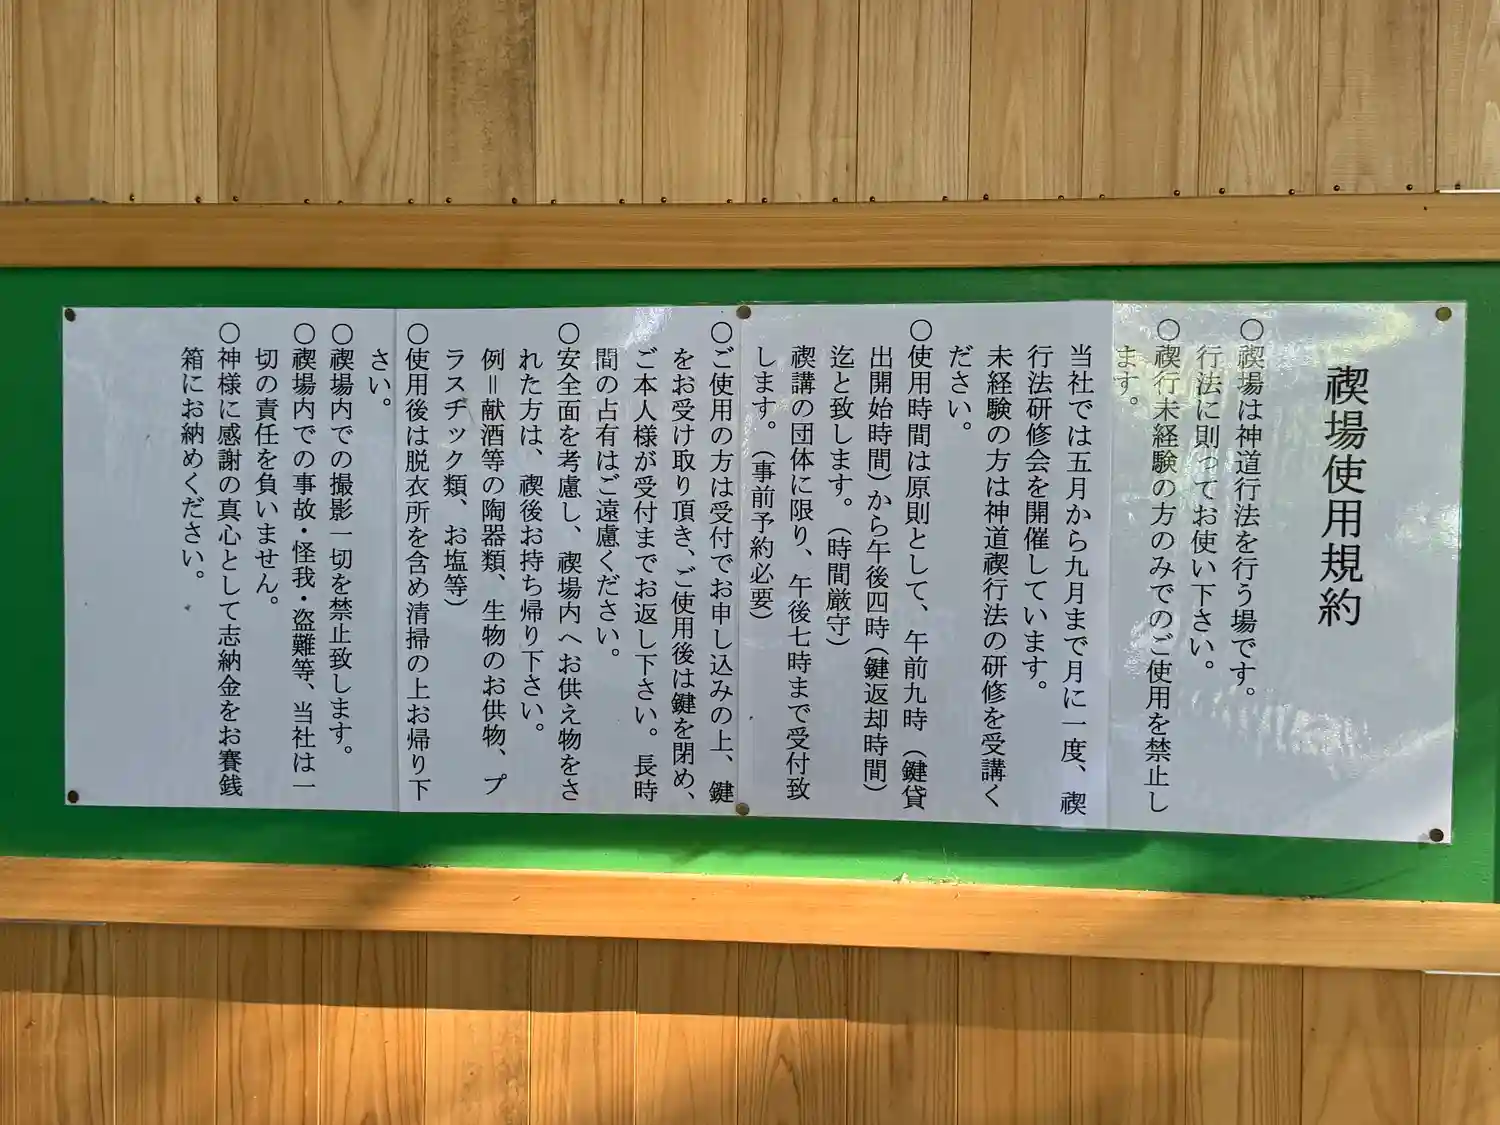 禊場使用規約
〇禊場は神道行法を行う場です。
行法に則ってお使い下さい。
〇禊行未経験の方のみでのご使用を禁止し
ます。
当社では五月から九月まで月に一度、禊
行法研修会を開催しています。
未経験の方は神道禊行法の研修を受講く
ださい。
〇使用時間は原則として、午前九時（鍵貸
出開始時間）から午後四時（鍵返却時間）
迄と致します。（時間厳守）
禊講の団体に限り、午後七時まで受付致
します。（事前予約必要）
〇ご使用の方は受付でお申し込みの上、鍵
をお受け取り頂き、ご使用後は鍵を閉め、
ご本人様が受付までお返し下さい。長時
間の占有はご遠慮ください。
〇安全面を考慮し、禊場内へお供え物をさ
れた方は、禊後お持ち帰り下さい。
例＝献酒等の陶器類、生物のお供物、プ
ラスチック類、お塩等）
〇使用後は脱衣所を含め清掃の上お帰り下
さい。
〇禊場内での撮影一切を禁止致します。
〇禊場内での事故・怪我・盗難等、当社は一
切の責任を負いません。
〇神様に感謝の真心として志納金をお賽銭
箱にお納めください。